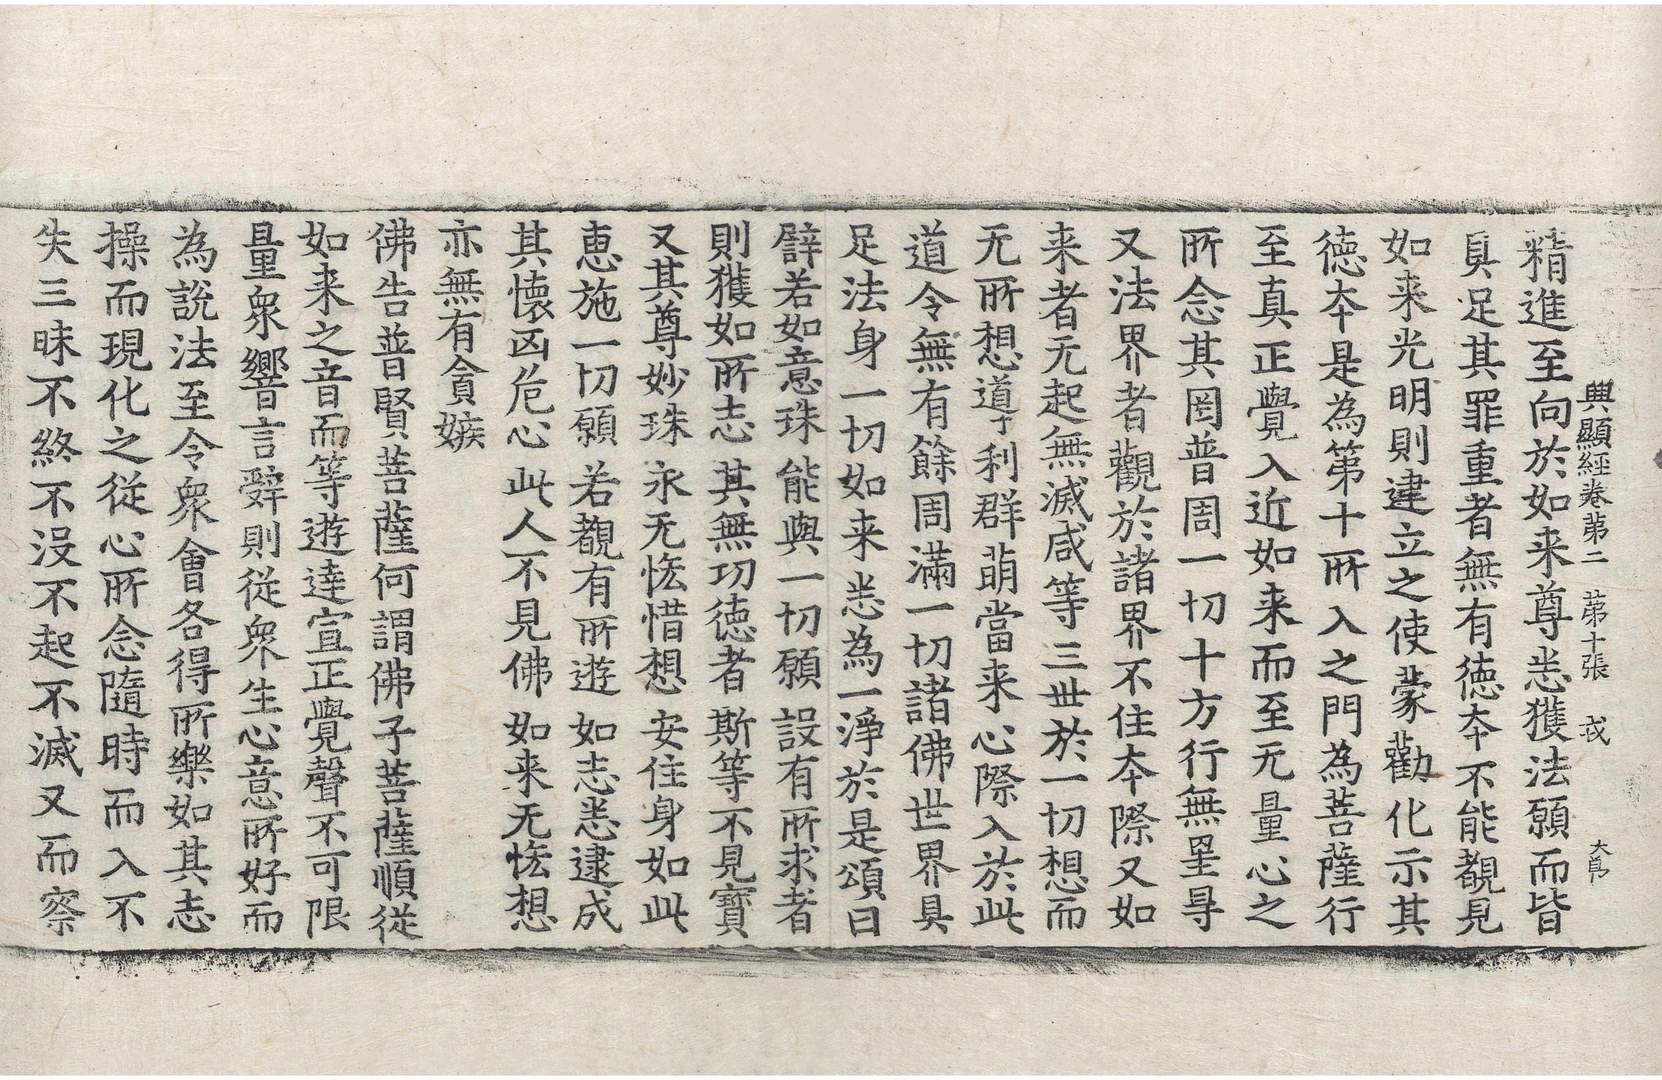 興顯經卷第二　第十張　戎　大𠂤
精進至向於如来尊悉獲法願而皆
具足其罪重者無有徳夲不能覩見
如来光明則建立之使蒙勸化示其
徳夲是為第十所入之門為菩薩行
至真正覺入近如来而至无量心之
所念其罔普周一切十方行無罣㝵
又法界者觀於諸界不住夲際又如
来者无起無滅咸等三世於一切想而
无所想道导利群萠當来心際入於此
道令無有餘周滿一切諸佛世界具
足法身一切如来悉為一淨於是頌曰
譬若如意珠　能與一切願　設有所求者
則獲如所志　其無功徳者　斯等不見寶
又其尊妙珠　永无恡惜想　安住身如此
恵施一切願　若覩有所遊　如志悉逮成
其懷凶危心　此人不見佛　如来无恡想
亦無有貪嫉
佛告普賢菩薩何謂佛子菩薩順従
如来之音而等遊達宣正覺聲不可限
量衆響言辤則従衆生心意所好而
為說法至令衆會各得所樂如其志
操而現化之従心所念隨時而入不
失三昧不終不没不起不滅又而察